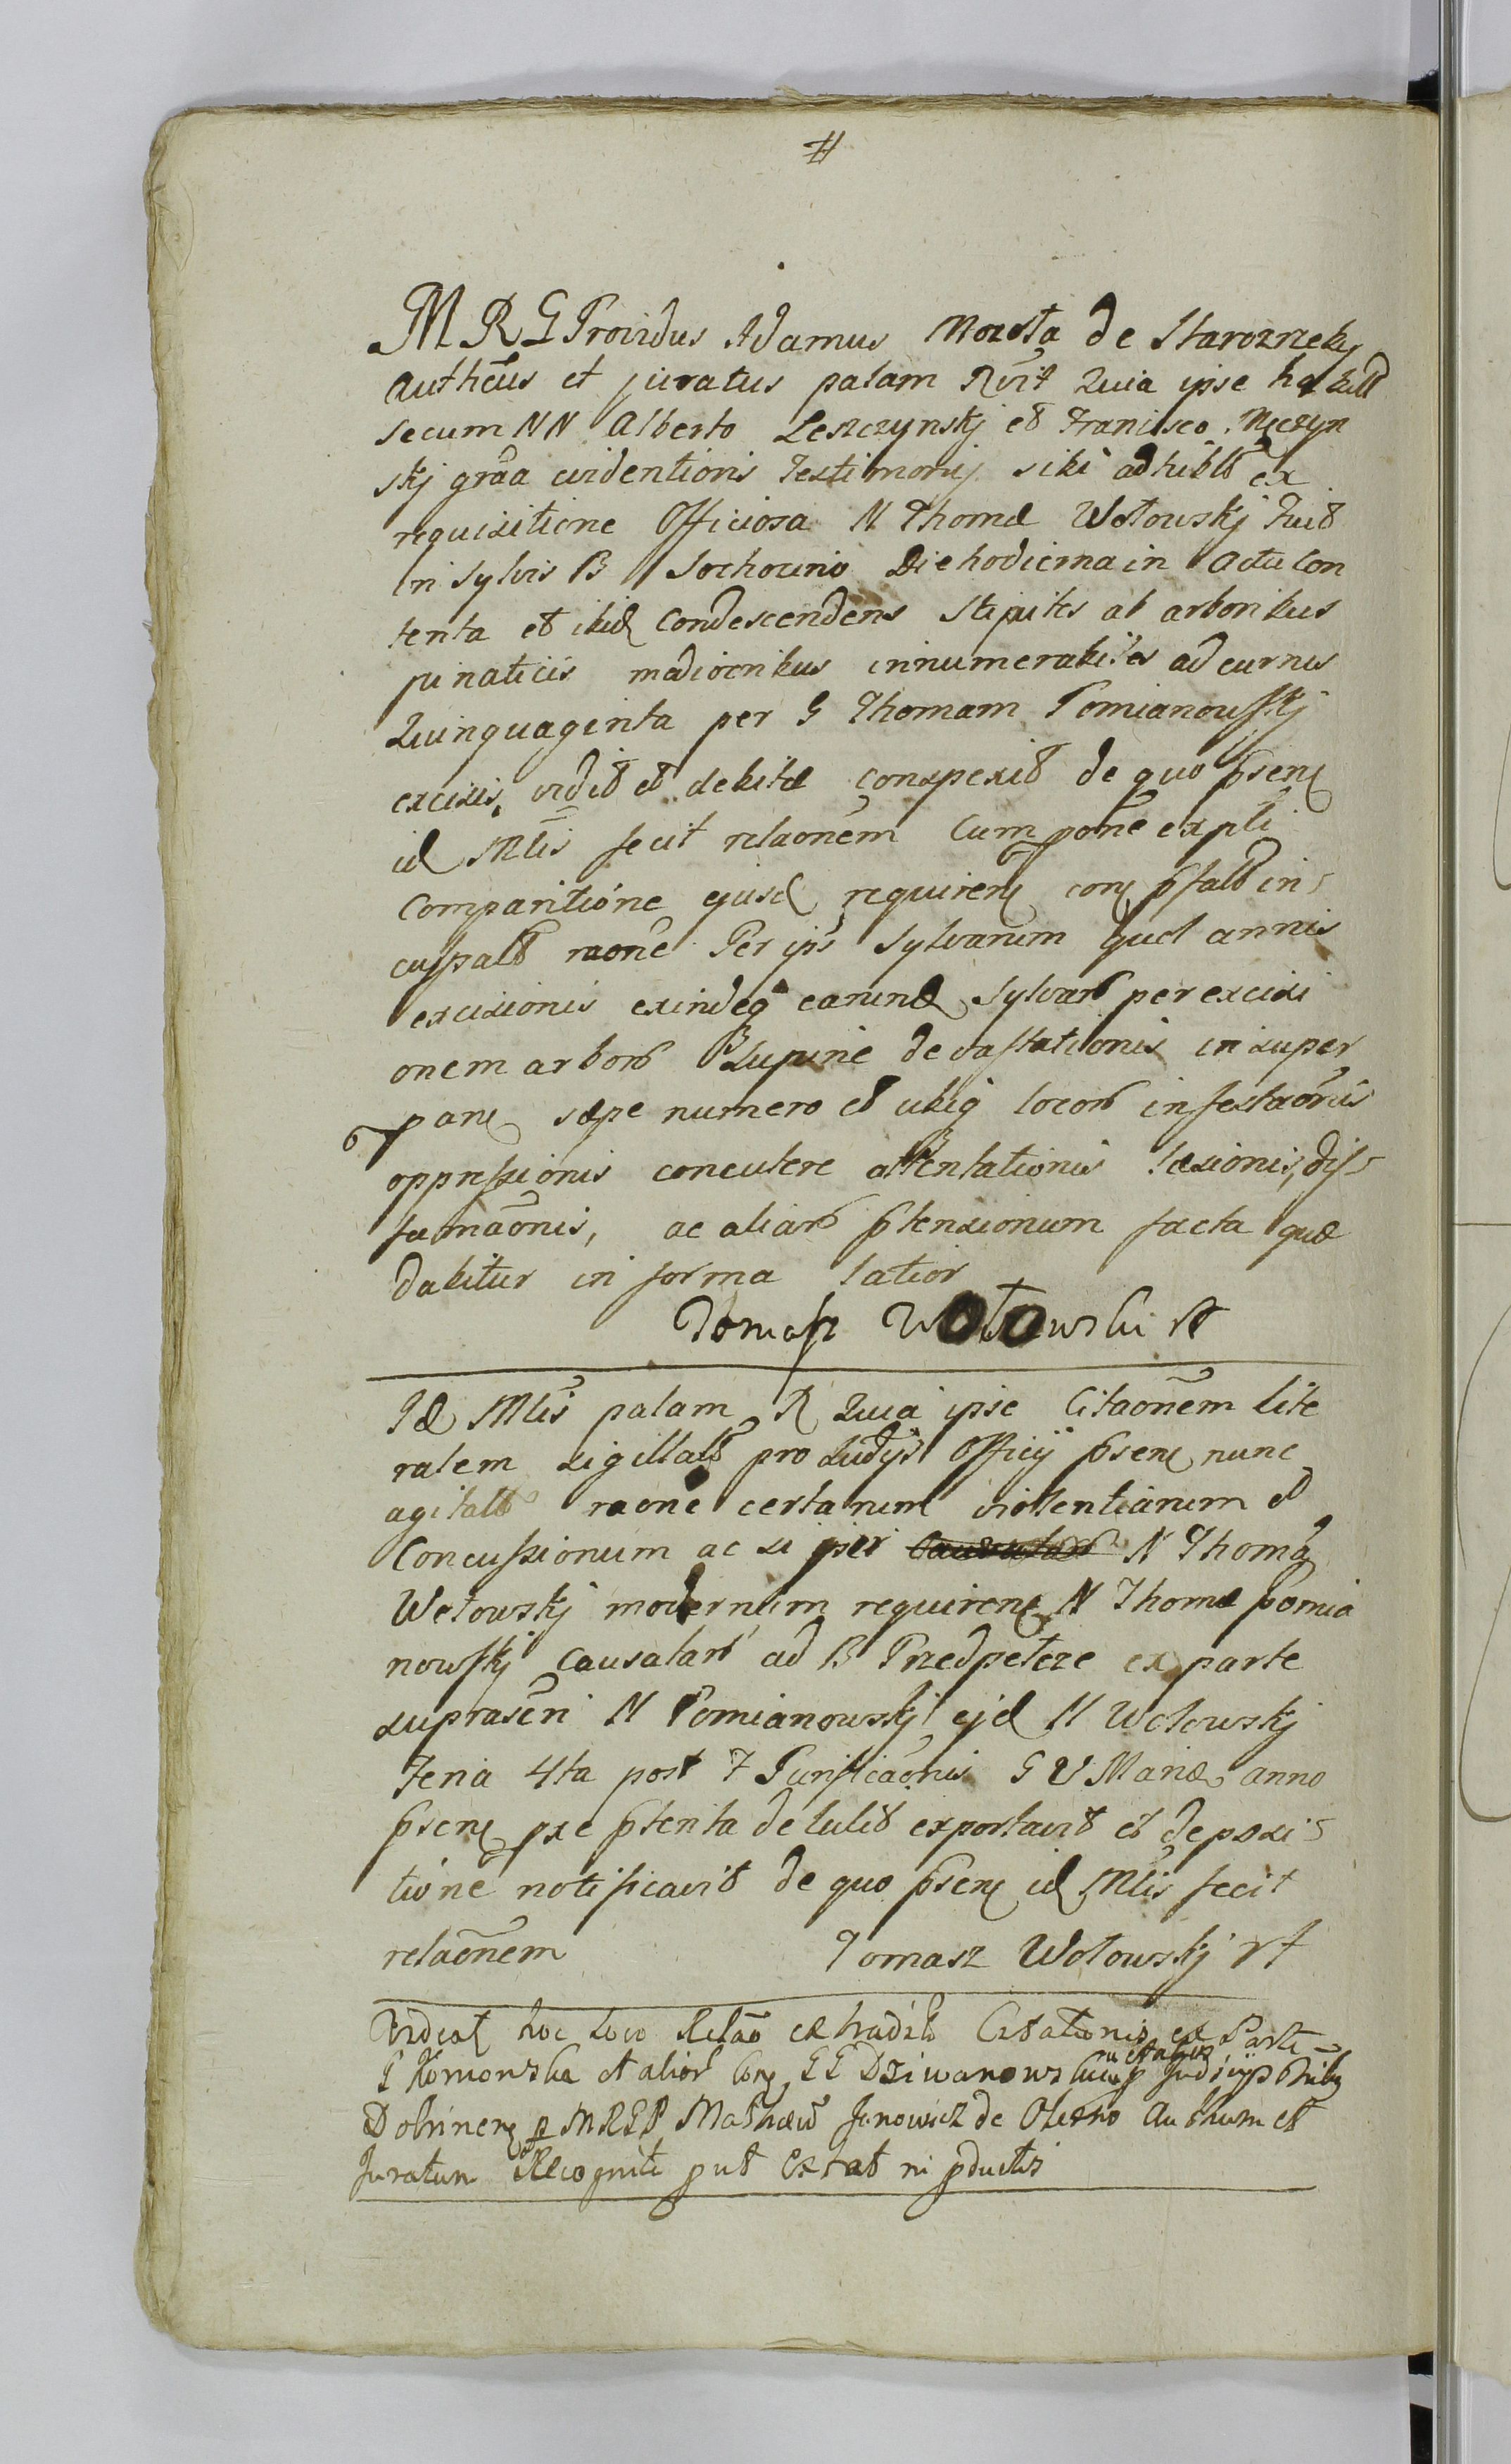 #
M R G Providus Adamus Mozoła de Starorzeky
Authēus et juratus palam Rvit Quia ipse habuit
secum NN Alberto Leszczynskj et Francisco Męczyn
skj grãa evidentioris Testimonij sibi adhibit ex
requisitione Officiosa N Thomæ Wołowskj Fuit
in sylvis B Sochocino Die hodierna in Actu Con
tenta et ibid Condescendens stipites ab arboribus
pinaticis mediocribus innumerabiles ad currus
Quinquaginta per G Thomam Pomianowskj
excisis, vidit et debitæ conspexit de quo psens
id Mlis fecit relaonem Cum pone expli
Comparitione ejusd requirens cons pfalt in
cusfalt raone Per ips Sylvarum quot annis
excisionis exindeq earund Sylvar per excisi
onem arbor Supine devastationis insuper
pans sæpe numero et ubiq locor infestaonis
oppressionis concutere attentationis læsionis, dif
famaonis, ac aliar ptensionum facta quæ
dabitur in forma latior
Tomasz Wołowski
Id Mlis palam R Quia ipse Citaonem lite
ralem sigillat pro Judijs Officij psens nunc
agitat raone certarum violentiarum et
Concussionum ac si per N Thomã
Wołowskj modernum requirens N Thomæ Pomia
nowskj causatar ad B Przedpełcze ex parte
suprascri N Pomianowskj ejd N Wołowskj
Feria 4ta post F Purificaonis G V Mariæ anno
psens pxe ptenta detulit exportavit et deposi
tione notificavit de quo psens id Mlis fecit
relaonem Tomasz Wołowskj
Videat hoc Loco Relao extradit Citationis ex Parte
G Komorska et alior Cons GG Dziwanowskich Judicijs
Dobrinens p MRGP Mathæu Janowicz de Oleszno Authum et
Juratum Recogniti put Extat in pductis